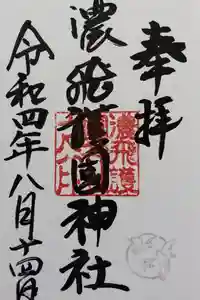 奉拝
濃飛護国神社
令和四年八月十四日